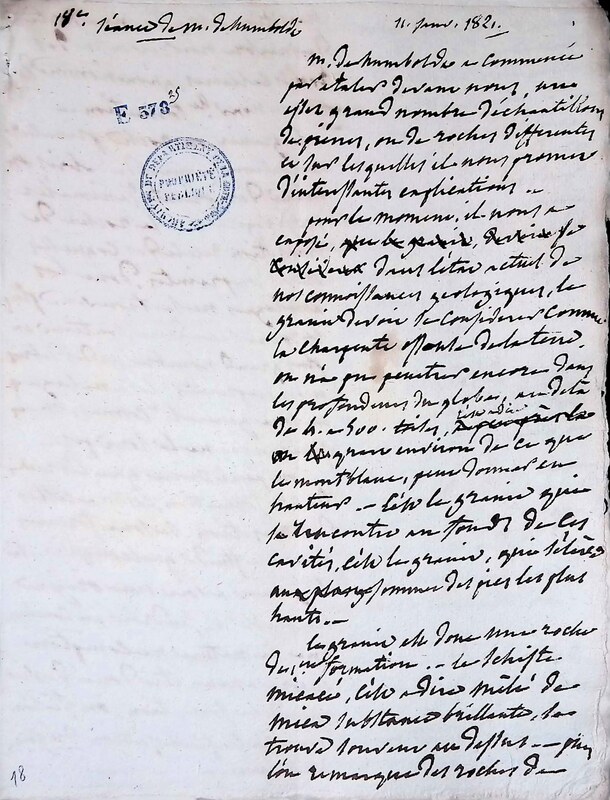 18e. séance de m. de humboldt
11. janv. 1821.
E 578 35
ARCHIVES DU DEPARTEMENT DE LA
PROPRIÉTÉ
PUBLIQUE
m. de humboldt a commencé
par etaler devant nous, un
assez grand nombre d'échantillons
de pierres, ou de roches differentes
et sur lesquelles il nous promet
d'interessantes explications. -
pour le moment, il nous a
exposé, que le granit, devoit se
considerer dans l'etat actuel de
nos connoissances geologiques, le
granit devoit se considerer comme
la charpente osseuse de la terre.
on n'a pu penetrer encore dans
les profondeurs du globe, au delà
de 4. a 500. toises, c'est a dire
environ de ce que
le montblanc, peut donner en
hauteur. - c'est le granit qui
se rencontre au fonds de ces
cavités, c'est le granit, qui s'élève
aux plus sommet des pics les plus
hauts. -
le granit est donc une roche
de 1ere formation. - le schiste
micacé, c'est a dire mêlé de
mica substance brillante, se
trouve souvent au dessus. - puis
l'on remarque des roches de
18